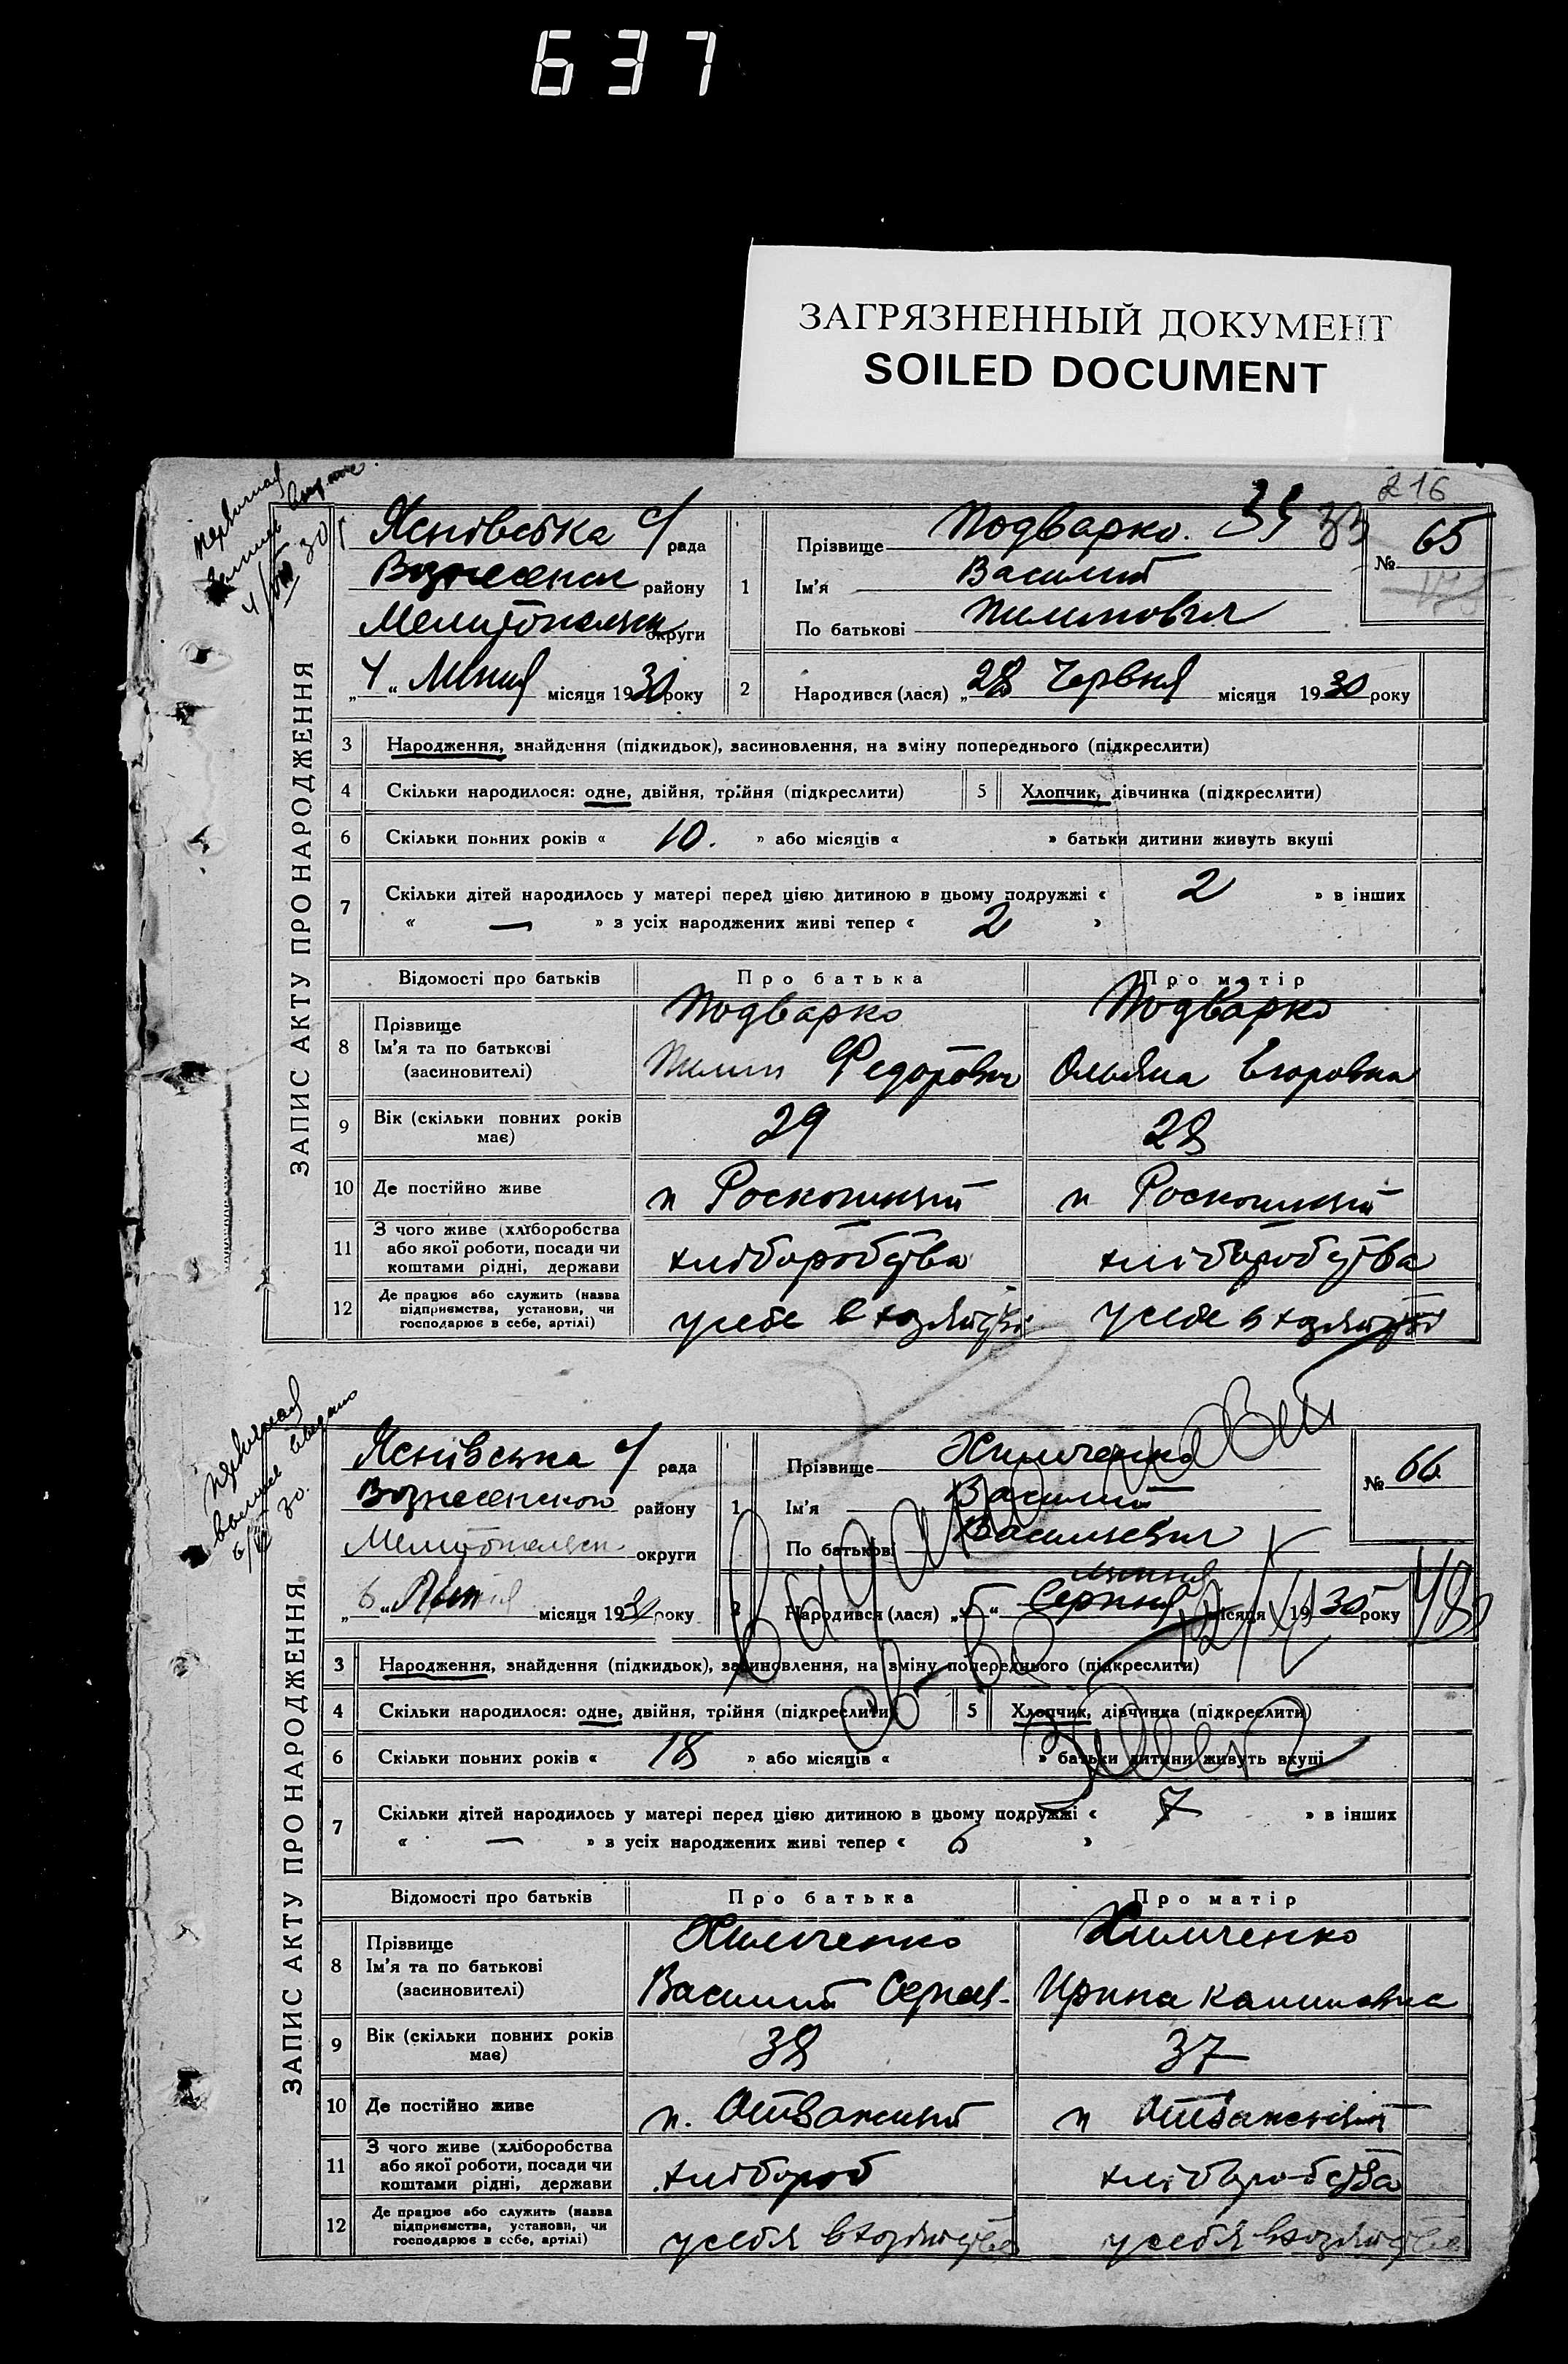 637
ЗАГРЯЗНЕННЫЙ ДОКУМЕНТ
SOILED DOCUMENT
216
ЗАПИС АКТУ ПРО НАРОДЖЕННЯ
Яснівська с/ рада
Вознесенск району
Мелитопольск округи
„4“ Липня місяця 1930 року
1 Прізвище Подварко.
Ім'я Василий
По батькові Пилипович
№ 65
2 Народився (лася) „28 Червня місяця 1930 року
3 Народження, знайдення (підкидьок), засиновлення, на зміну попереднього (підкреслити)
4 Скільки народилося: одне, двійня, трійня (підкреслити) 5 Хлопчик, дівчинка (підкреслити)
6 Скільки повних років « 10. » або місяців « » батьки дитини живуть вкупі
7 Скільки дітей народилось у матері перед цією дитиною в цьому подружжі « 2 » в інших
« — » з усіх народжених живі тепер « 2 »
Відомості про батьків Про батька Про матір
8 Прізвище Подварко Подварко
Ім'я та по батькові
(засновителі) Пилип Федорович Ольяна Егоровна
9 Вік (скільки повних років
має) 29 28
10 Де постійно живе п Роскошный п Роскошный
11 З чого живе (хліборобства
або якої роботи, посади чи
коштами рідні, держави хліборобства хліборобства
12 Де працює або служить (назва
підприємства, установи, чи
господарює в себе, артілі) у себе в хозяйстві у себе в хозяйстві
ЗАПИС АКТУ ПРО НАРОДЖЕННЯ
Яснівська с/ рада
Вознесенского району
Мелитопольск округи
„6“ місяця 1930 року
1 Прізвище Химченко
Ім'я Василий
По батькові Васильевич
№ 66
липня
2 Народився (лася) Серпня місяця 1930 року
3 Народження, знайдення (підкидьок), засиновлення, на зміну попереднього (підкреслити)
4 Скільки народилося: одне, двійня, трійня (підкреслити) 5 Хлопчик, дівчинка (підкреслити)
6 Скільки повних років « 18 » або місяців « » батьки дитини живуть вкупі
7 Скільки дітей народилось у матері перед цією дитиною в цьому подружжі « 7 » в інших
« — » з усіх народжених живі тепер « 6 »
Відомості про батьків Про батька Про матір
8 Прізвище Химченко Химченко
Ім'я та по батькові
(засиновителі) Василий Ирина
9 Вік (скільки повних років
має) 38 37
10 Де постійно живе п. Отважный п
11 З чого живе (хліборобства
або якої роботи, посади чи
коштами рідні, держави хлібороб хліборобства
12 Де працює або служить (назва
підприємства, установи, чи
господарює в себе, артілі) у себя в хозяйстве у себя в хозяйстве